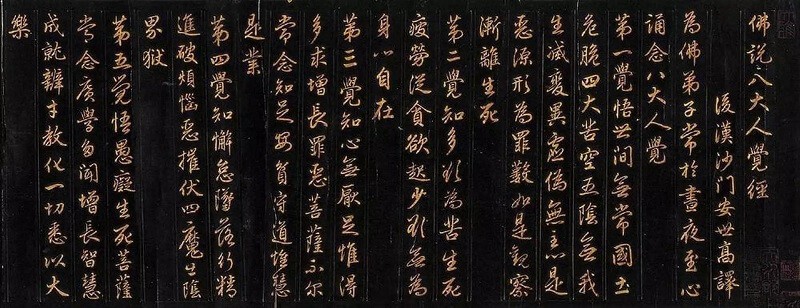 佛説八大人覺經
後漢沙門安世高譯
為佛弟子常於晝夜至心
誦念八大人覺
第一覺悟世間無常國土
危脆四大苦空五陰無我
生滅變異虛偽無主心是
惡源形為罪藪如是觀察
漸離生死
第二覺知多欲為苦生死
疲勞從貪欲起少欲無為
身心自在
第三覺知心無厭足惟得
多求增長罪惡菩薩不尔
常念知足安貧守道惟慧
是業
第四覺知懈怠墮落行精
進破煩惱惡摧伏四魔生陰
界獄
第五覺悟愚癡生死菩薩
常念廣學多聞增長智慧
成就辯才教化一切悉以大
樂